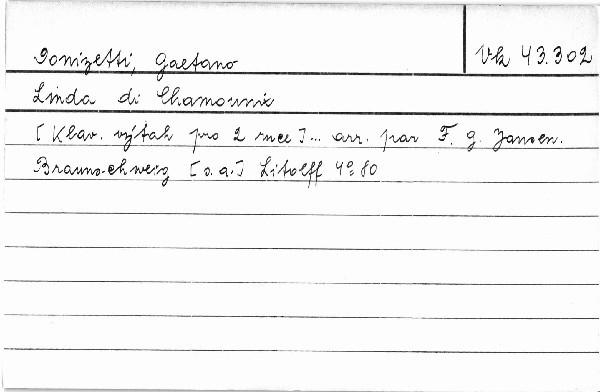 Donizetti, Gaetano
Vk 43.302
Linda di Chamounix
[Klav. výtah pro 2 ruce]... arr. par F. G. Jansen.
Braunschweig [s.a.] Litolff 4° 80